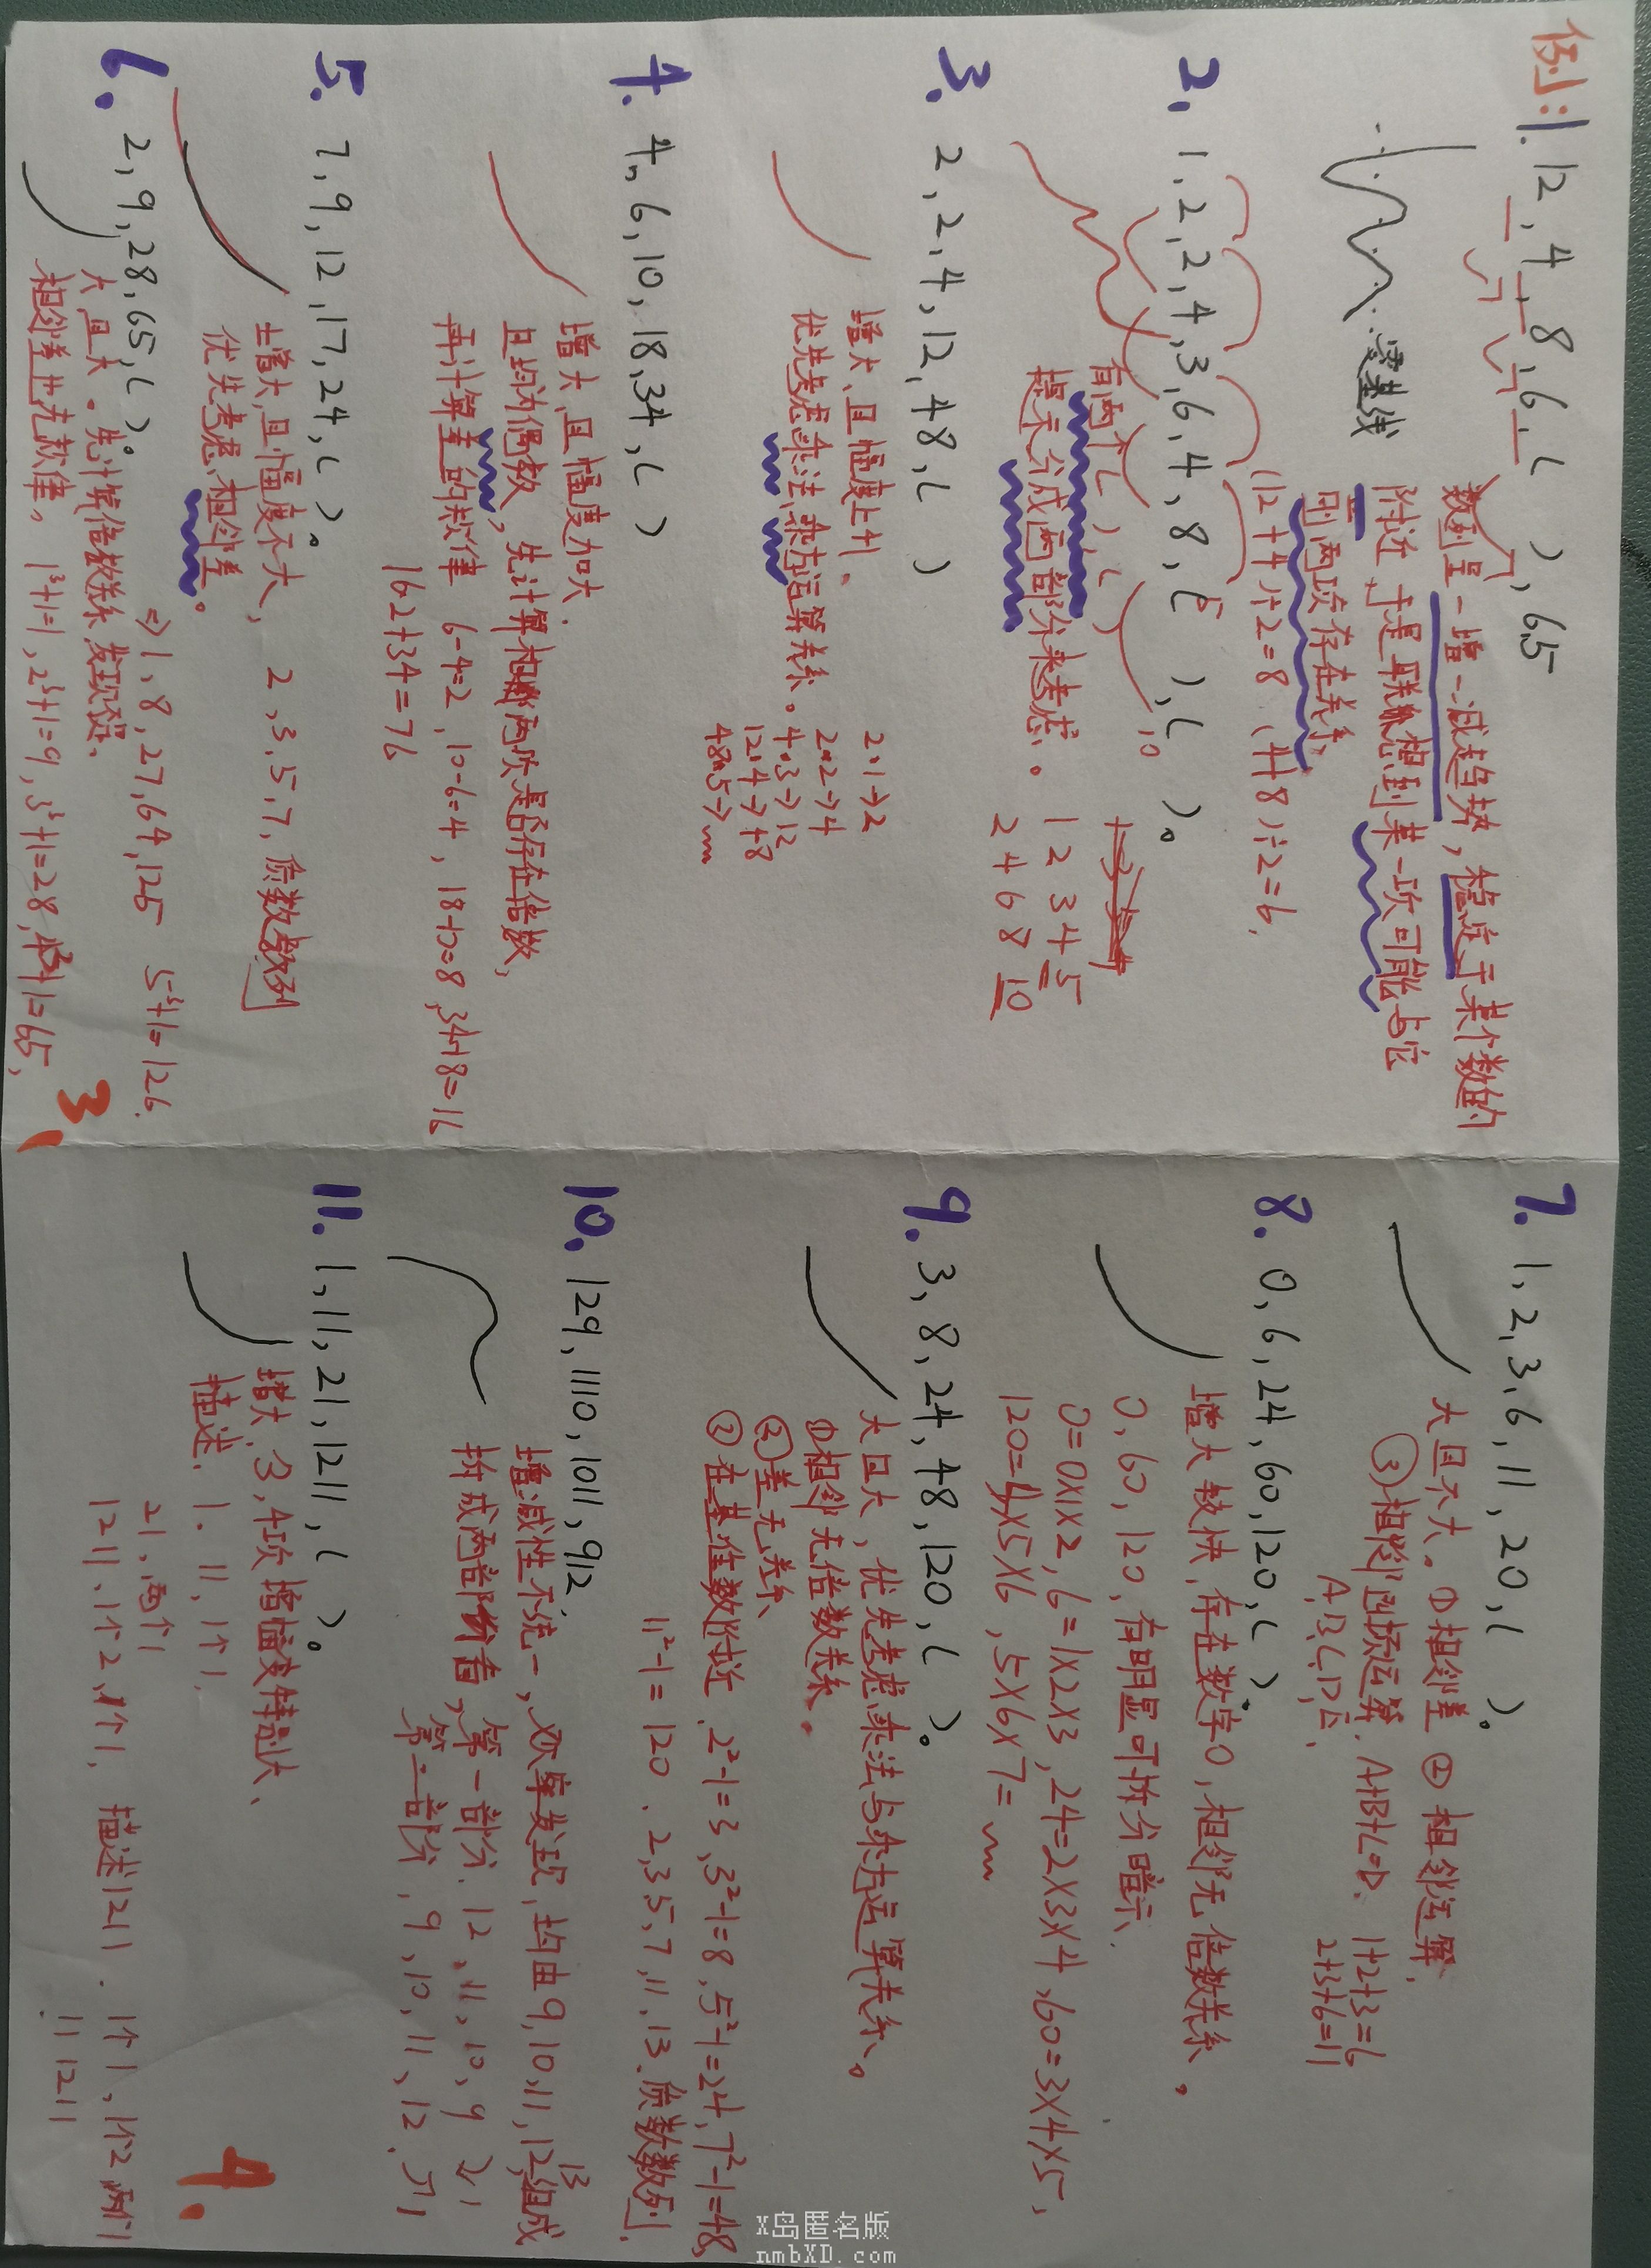 例:1. 12,4,8,6,( ),6.5
数列呈一增一减趋势,稳定于某个数值的
附近,于是联想到某一项可能与它
前两项存在关系,
(12+4)÷2=8,(4+8)÷2=6.
零基线
2. 1,2,2,4,3,6,4,8,( 5 ),( ).
10
有两个( ),( )
提示分成两部分来考虑。
1 2 3 4 5
2 4 6 8 10
3. 2,2,4,12,48,( )
增大,且幅度上升.
优先考虑乘法,乘方运算关系。
2·1→2
2·2→4
4·3→12
12·4→48
48·5→
4. 4,6,10,18,34,( )
增大,且幅度加大.
且均为偶数,先计算相邻两项是否存在倍数,
再计算差的规律 6-4=2,10-6=4,18-10=8,34-18=16
162+34=76
5. 7,9,12,17,24,( )。
增大,且幅度不大, 2,3,5,7,质数数列
优先考虑相邻差。
6. 2,9,28,65,( )。
⇒1,8,27,64,125 5³+1=126.
大且大。先计算倍数关系,发现没.
相邻差也无规律, 1³+1=1,2³+1=9,3³+1=28,4³+1=65,
3、
7. 1,2,3,6,11,20,( )。
大但不大。①相邻差 ②相邻运算.
③相邻四项运算.A+B+C=D. 1+2+3=6
A,B,C,D,E, 2+3+6=11
8. 0,6,24,60,120,( ).
增大较快,存在数字0,相邻无倍数关系。
0,60,120,有明显可拆分暗示.
0=0×1×2,6=1×2×3,24=2×3×4,60=3×4×5,
120=4×5×6,5×6×7=
9. 3,8,24,48,120,( )。
大且大,优先考虑乘法与乘方运算关系。
①相邻无倍数关系。
②差无关系
③在某值数附近.2²-1=3,3²-1=8,5²-1=24,7²-1=48,
11²-1=120、2,3,5,7,11,13.质数数列.
10. 129,1110,1011,912,
增减性不统一,观察发现,均由9,10,11,12,13组成
拆成两部分看,第一部分.12,11,10,9
第二部分,9,10,11,12,
11. 1,11,21,1211,( )。
增大.3,4项增幅变特别大、
描述. 1. 11,1个1.
21,两个1
1211、1个2,1个1, 描述1211. 1个1,1个2,两个1
11 12 11
4.
X岛匿名版
nmbXD.com